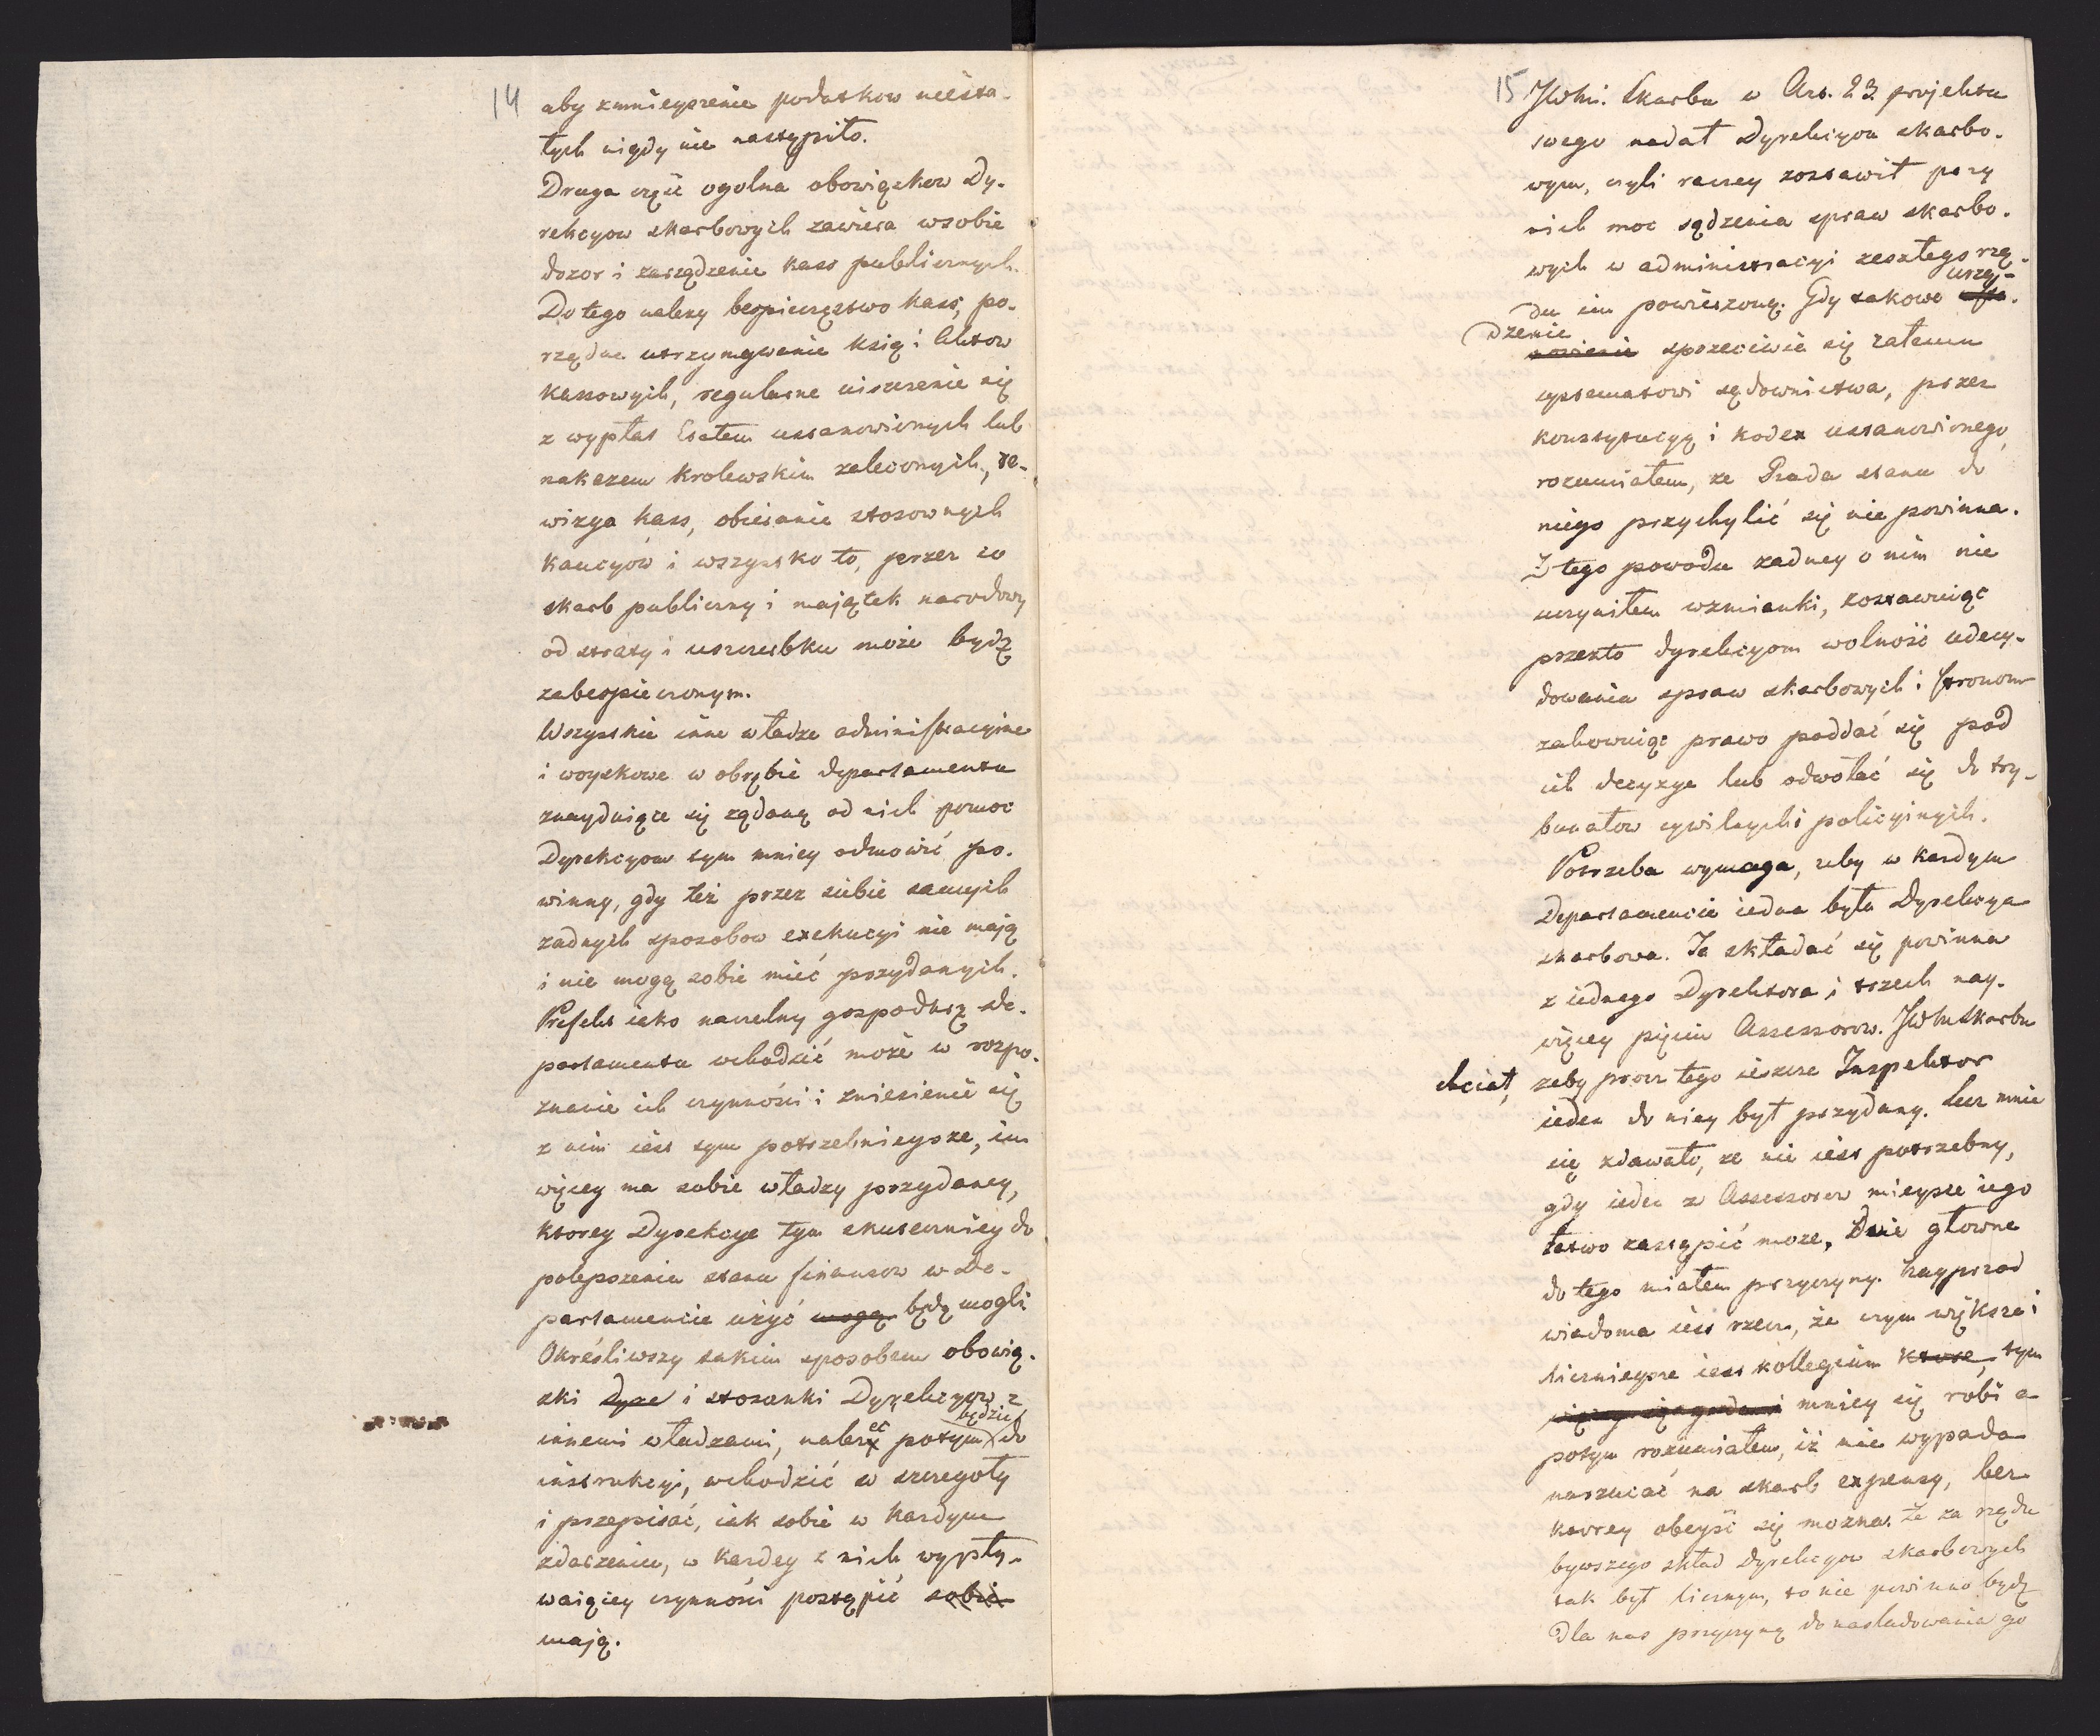 14
aby zmnieyszenie podatkow niesta-
łych nigdy nie nastąpiło.
Druga część ogolna obowiązkow Dy-
rekcyow skarbowych zawiera w sobie
dozor i zarządzenie kass publicznych.
Do tego należy bespieczęstwo kass, po-
rządne utrzymywanie ksiąg i Aktow
kassowych, regularne uiszczenie się
z wypłat Etatem ustanowionych lub
nakazem Krolewskim zaleconych, re-
wizya kass, obieranie stosownych
kaucyow i wszystko to, przez co
skarb publiczny i majątek narodowy
od straty i uszczerbku może bydź
zabespieczonym.
Wszystkie inne władze administracyine
i woyskowe w obrębie departamentu
znayduiące się żądaną od nich pomoc
Dyrekcyom tym mniey odmowić po-
winny, gdy też przez siebie samych
żadnych sposobow exekucyi nie mają
i nie mogą sobie mieć przydanych.
Prefekt iako naczelny gospodarz de-
partamentu wchodzić może w rozpo-
znanie ich czynności i zniesienie się
z nim iest tym potrzebnieysze, im
więcey ma sobie władzy przydaney,
ktorey Dyrekcye tym skuteczniey do
polepszenia stanu finansow w De-
partamencie użyć mogą będą mogli
Określiwszy takim sposobem obowią-
zki Dyre i stosunki Dyrekcyow z
będzie
innemi władzami, należeć potym do
instrukcyi, wchodzić w szczegoły
i przepisać, iak sobie w każdym
zdarzeniu, w każdey z nich wypły-
waiącey czynności postąpić sobie
mają.
15
JWMi. Skarbu w Art. 23 projektu
swego nadał Dyrekcyom skarbo-
wym, czyli raczey zostawił przy
nich moc sądzenia spraw skarbo-
wych w administracyi zeszłego rzą-
urzą-
du im powierzoną. Gdy takowe usta-
dzenie
nowienie sprzeciwia się całemu
systematowi sądownictwa, przez
konstytucyą i kodex ustanowionego,
rozumiałem, że Rada stanu do
niego przychylić się nie powinna.
Z tego powodu żadney o nim nie
uczyniłem wzmianki, zostawuiąc
przezto dyrekcyom wolność udecy-
dowania spraw skarbowych i stronom
zachowuiąc prawo poddać się pod
ich decyzye lub odwołać się do try-
bunałow cywilnych i policyinych.
Potrzeba wymaga, żeby w każdym
Departamencie iedna była Dyrekcya
skarbowa. Ta składać się powinna
z iednego Dyrektora i trzech nay-
więcey pięciu Assessorow. JWMSkarbu
chciał, żeby procz tego ieszcze Inspektor
ieden do niey był przydany. Lecz mnie
się zdawało, że nie iest potrzebny,
gdy ieden z Assessorow mieysce iego
łatwo zastąpić może. Dwie głowne
do tego miałem przyczyny. Nayprzod
wiadoma iest rzecz, że czym większe i
licznieysze iest kollegium ktore, tym
mniey się robi a
potym rozumiałem, iż nie wypada
narzucać na skarb expensy, bez
ktorey obeyść się można. Że za rządu
bywszego skład dyrekcyow skarbowych
tak był licznym, to nie powinno bydź
dla nas przyczyną do nasladowania go